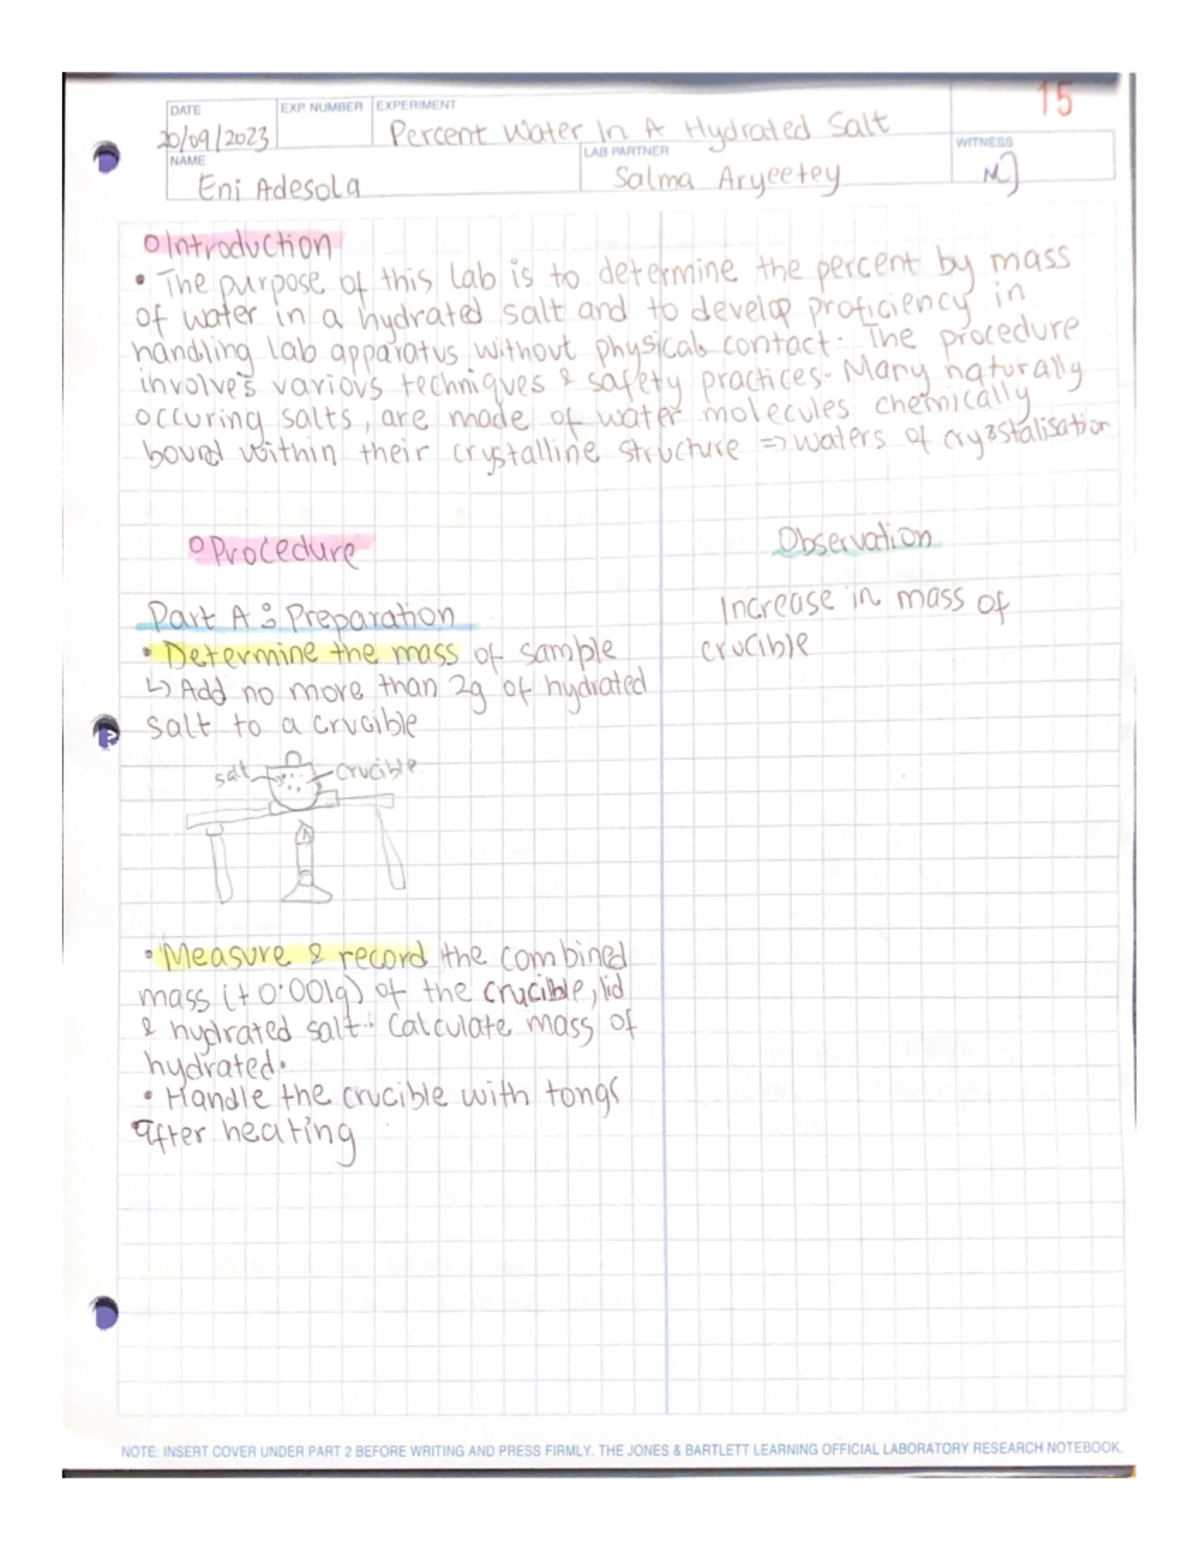 15
DATE
EXP. NUMBER
EXPERIMENT
20/09/2023
Percent Water In A Hydrated Salt
NAME
LAB PARTNER
WITNESS
Eni Adesola
Salma Aryeetey
Introduction
• The purpose of this lab is to determine the percent by mass
of water in a hydrated salt and to develop proficiency in
handling lab apparatus without physical contact. The procedure
involves various techniques & safety practices. Many naturally
occuring salts, are made of water molecules chemically
bound within their crystalline structure => waters of crystalisation
Procedure
Observation
Part A: Preparation
• Determine the mass of sample
↳ Add no more than 2g of hydrated
salt to a crucible
Increase in mass of
crucible
salt
crucible
• Measure & record the combined
mass (± 0.001g) of the crucible, lid
& hydrated salt. Calculate mass of
hydrated.
• Handle the crucible with tongs
after heating
NOTE: INSERT COVER UNDER PART 2 BEFORE WRITING AND PRESS FIRMLY. THE JONES & BARTLETT LEARNING OFFICIAL LABORATORY RESEARCH NOTEBOOK.